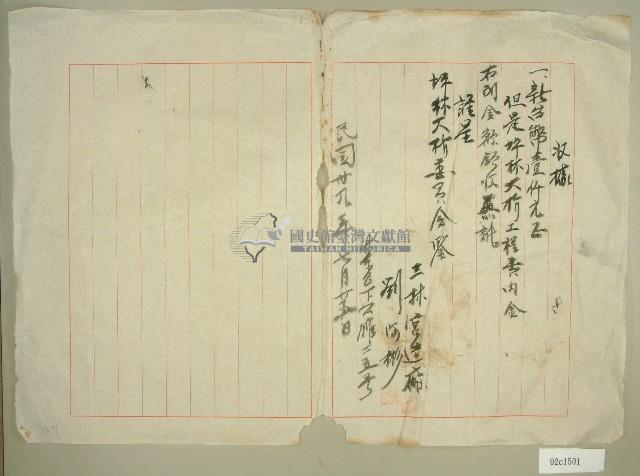 收據
一、新台幣壹仟元正
但是坪林大橋工程費內金
右列金額領收無訛
謹呈
坪林大橋委員會鑒
三林營造廠
劉阿彬
二五号
民國卅九年七月廿五日
國史館臺灣文獻館
TAIWAN HISTORICA
02c1501